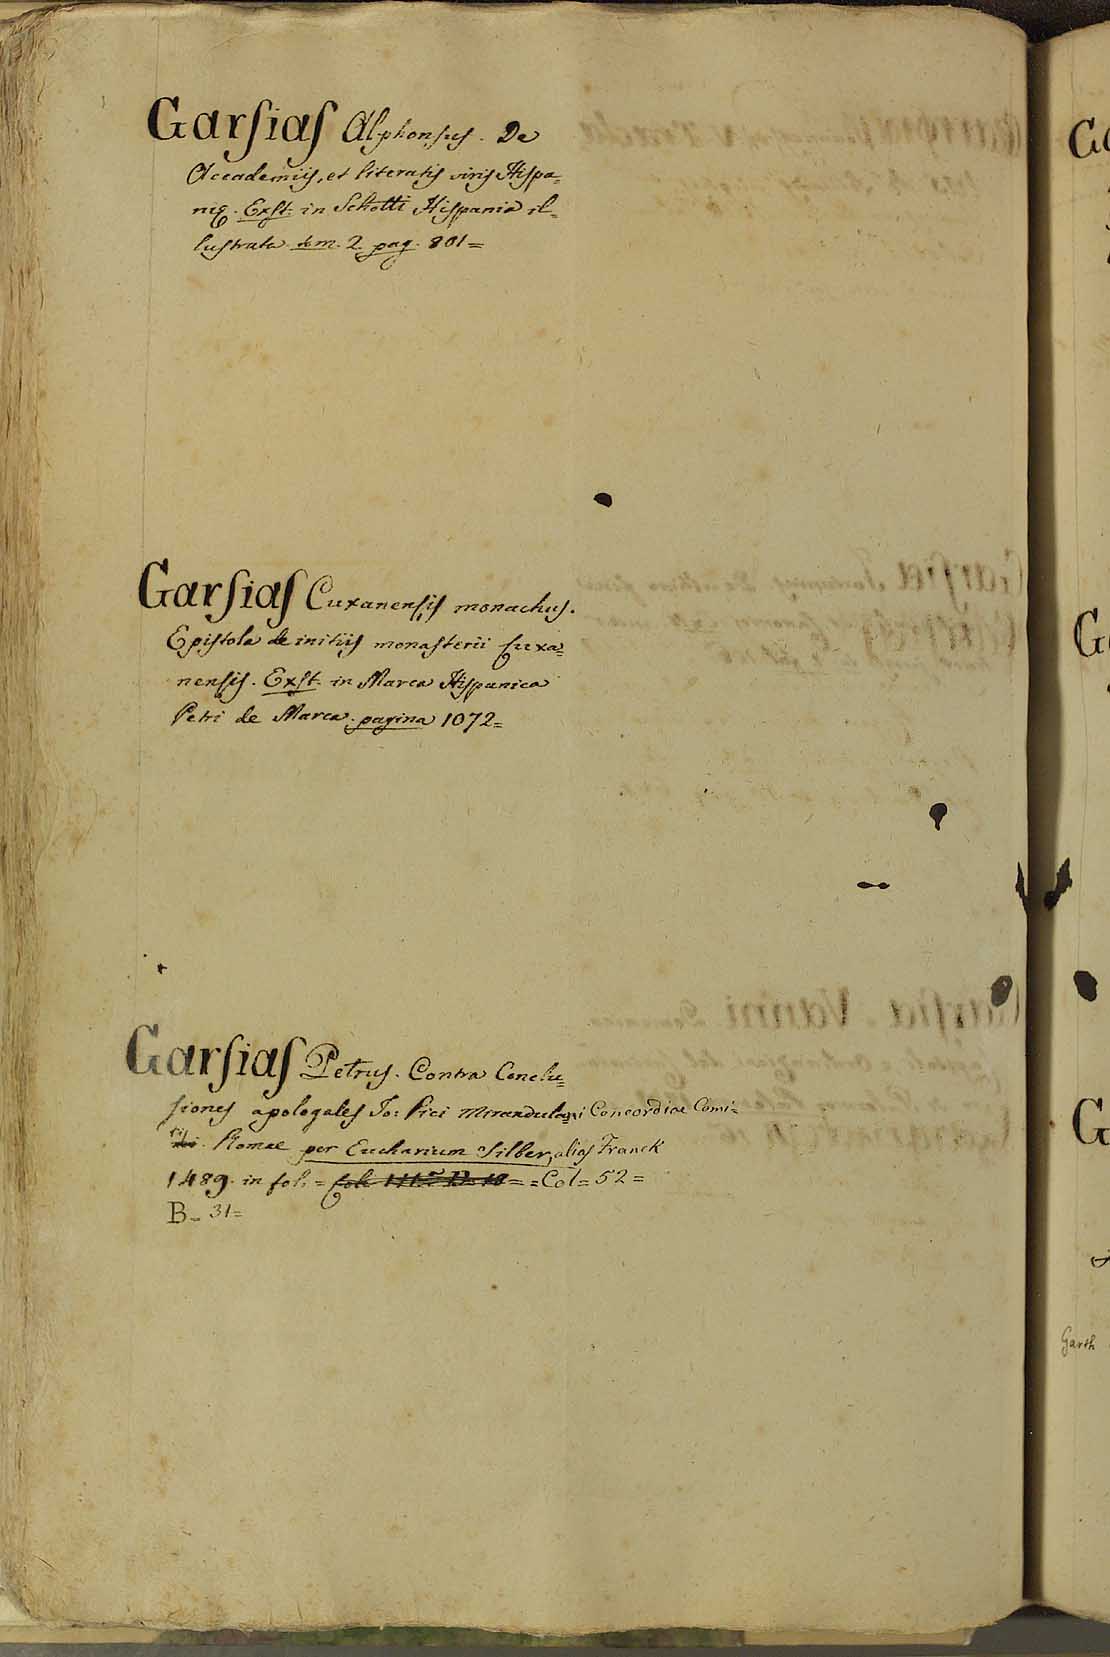 Garsias Alphonsus. De
Accademiis, et literatis viris Hispa=
nię. Exst. in Schotti Hispania il=
lustrata tom. 2. pag. 801=
Garsias Cuxanensis monachus.
Epistola de initiis monasterii Cuxa=
nensis. Exst. in Marca Hispanica
Petri de Marca. pagina 1072=
Garsias Petrus. Contra Conclu=
siones apologales Jo: Pici Mirandulani Concordiae Comi=
tis. Romae per Eucharium Silber, alias Franck
1489. in fol. = = Col= 52=
B= 31=
G
G
G
Garth